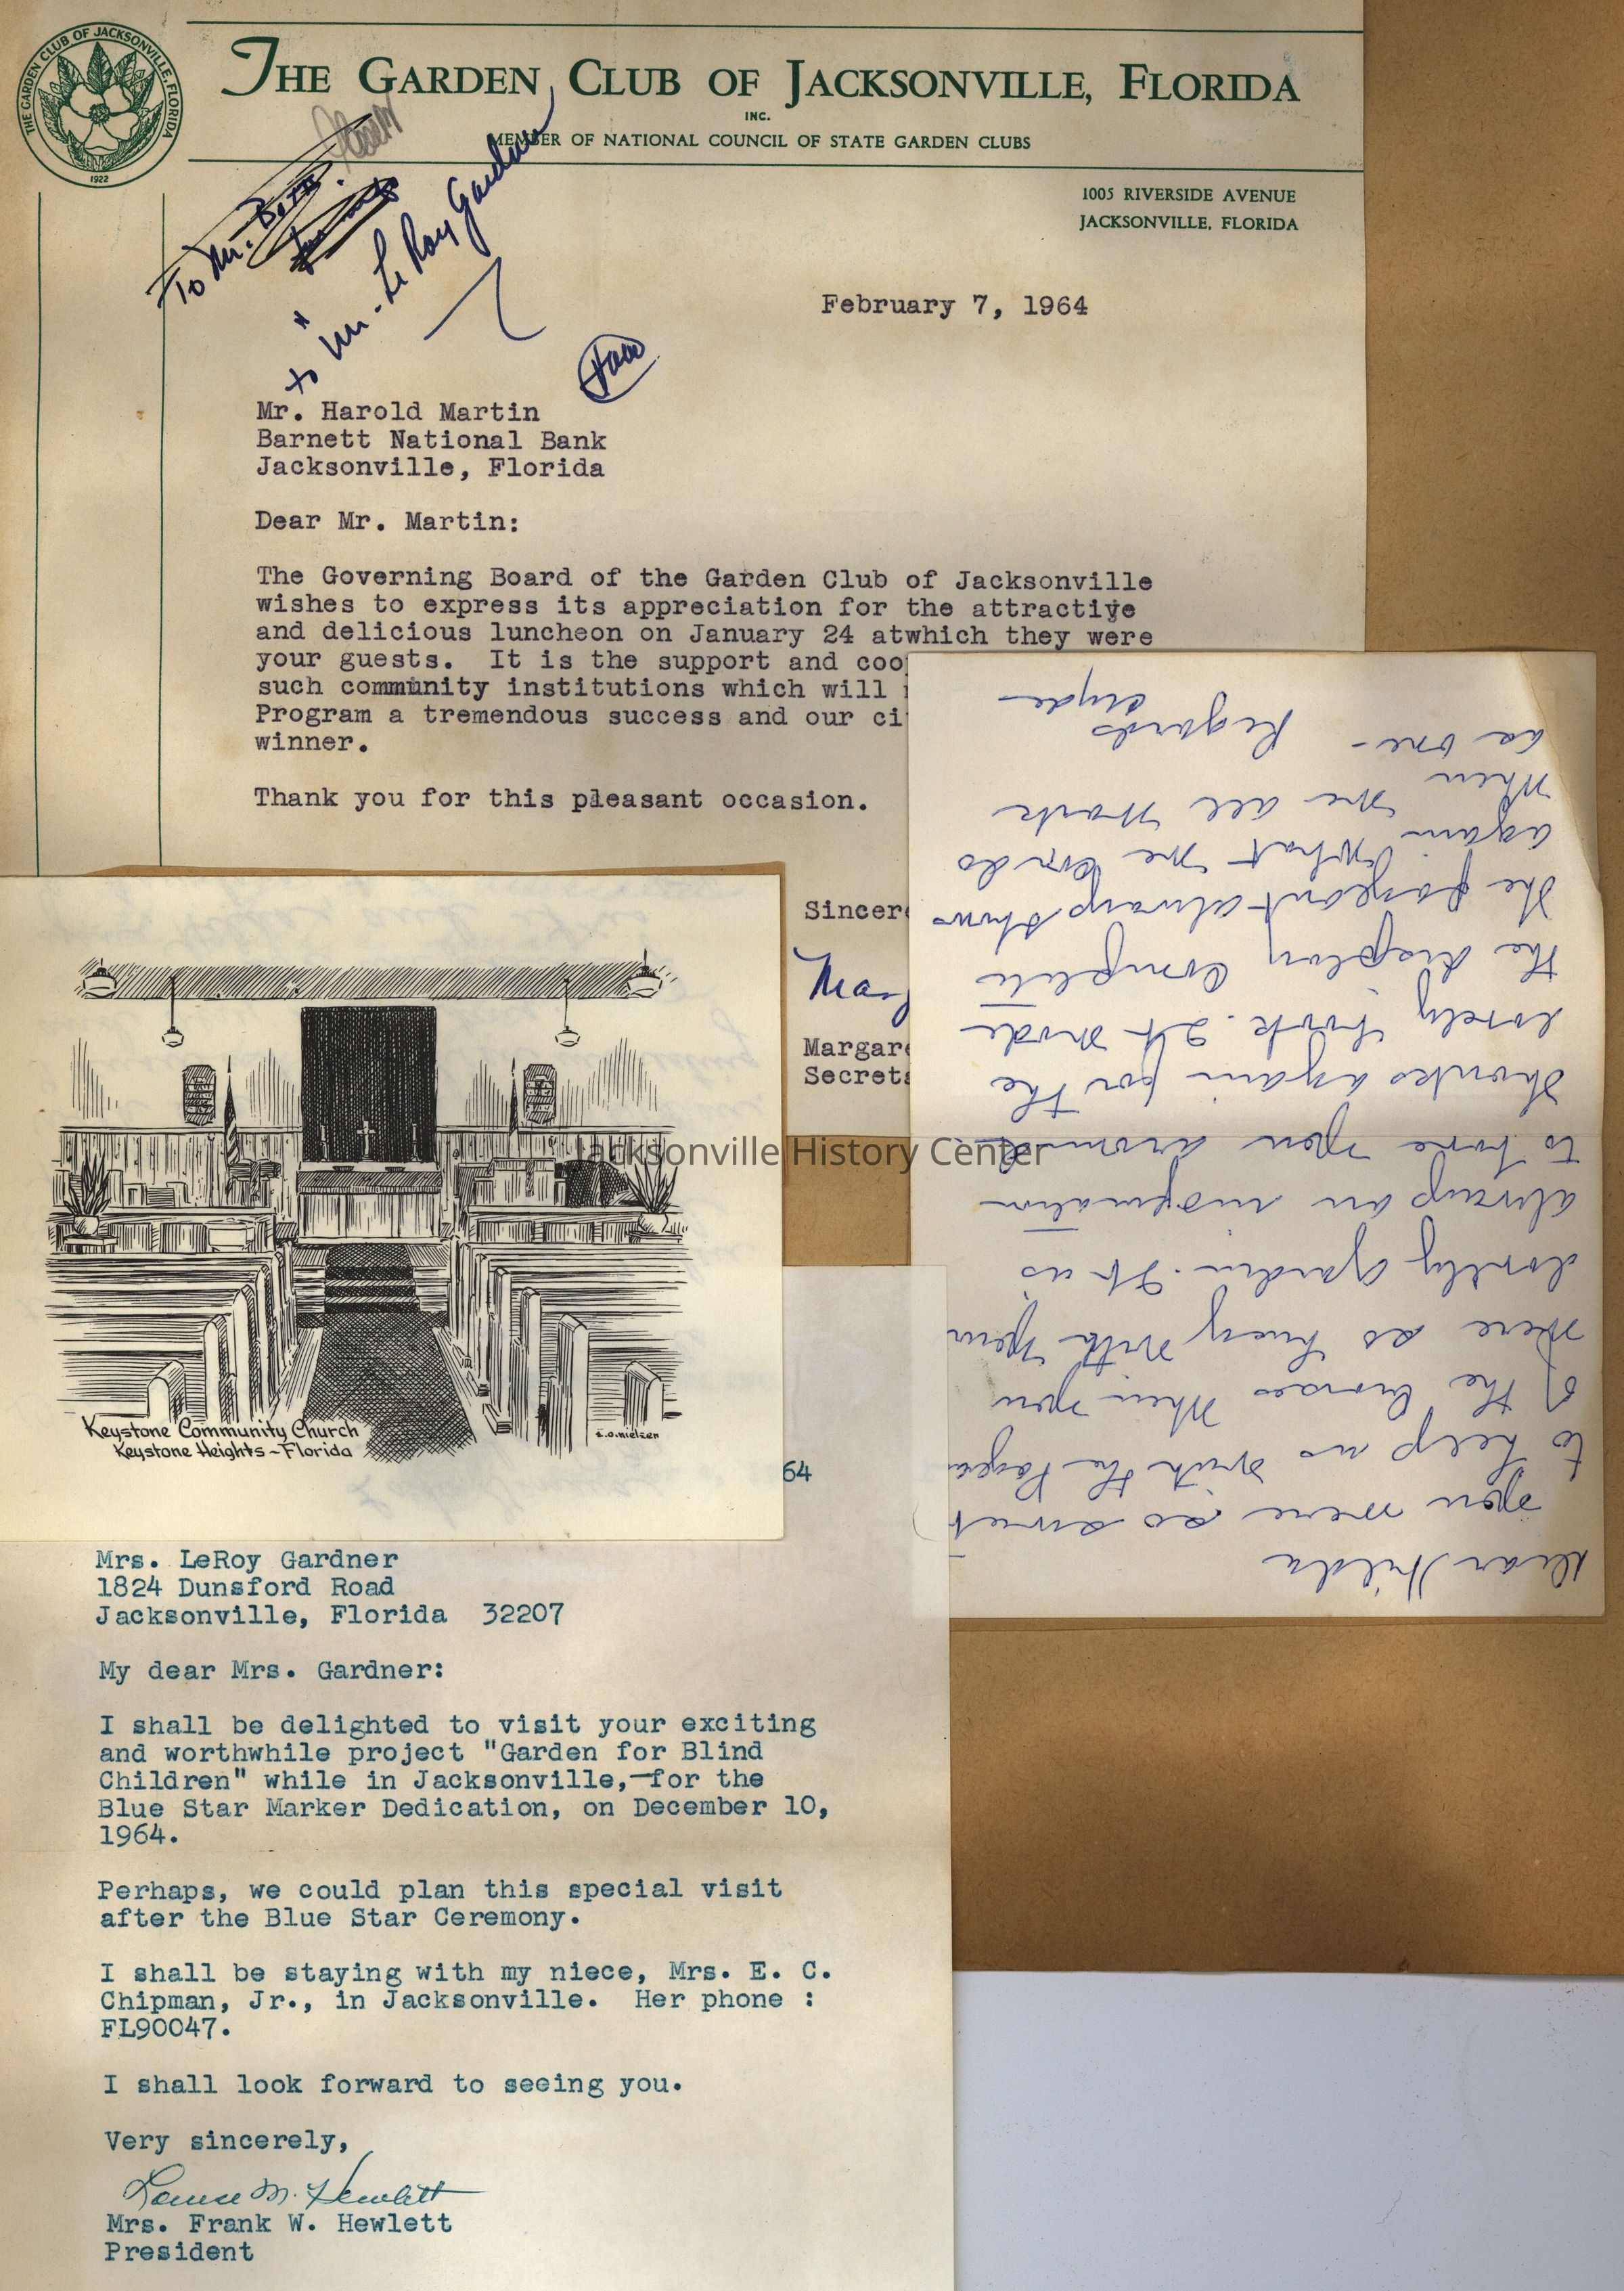 THE GARDEN CLUB OF JACKSONVILLE, FLORIDA
1922
THE GARDEN CLUB OF JACKSONVILLE, FLORIDA
INC.
MEMBER OF NATIONAL COUNCIL OF STATE GARDEN CLUBS
1005 RIVERSIDE AVENUE
JACKSONVILLE, FLORIDA
To Mr.
to Mr. Le Roy Gardner
February 7, 1964
Mr. Harold Martin
Barnett National Bank
Jacksonville, Florida
Dear Mr. Martin:
The Governing Board of the Garden Club of Jacksonville
wishes to express its appreciation for the attractive
and delicious luncheon on January 24 atwhich they were
your guests. It is the support and coop
such community institutions which will
Program a tremendous success and our ci
winner.
Thank you for this pleasant occasion.
Sincere
Mar
Margare
Secreta
Jacksonville History Center
Keystone Community Church
Keystone Heights - Florida
E.O. Nielsen
64
Mrs. LeRoy Gardner
1824 Dunsford Road
Jacksonville, Florida 32207
My dear Mrs. Gardner:
I shall be delighted to visit your exciting
and worthwhile project "Garden for Blind
Children" while in Jacksonville,-for the
Blue Star Marker Dedication, on December 10,
1964.
Perhaps, we could plan this special visit
after the Blue Star Ceremony.
I shall be staying with my niece, Mrs. E. C.
Chipman, Jr., in Jacksonville. Her phone :
FL90047.
I shall look forward to seeing you.
Very sincerely,
Louise M. Hewlett
Mrs. Frank W. Hewlett
President
Dear Hilda
You were so sweet
to help us with the Pagea
of the when you
were so busy with your
lovely garden. It is
always an inspiration
to have you around
Thanks again for the
lovely work. It made
the display complete
The pageant always shows
again what we can do
when we all work
as one -
Regards
Clyde